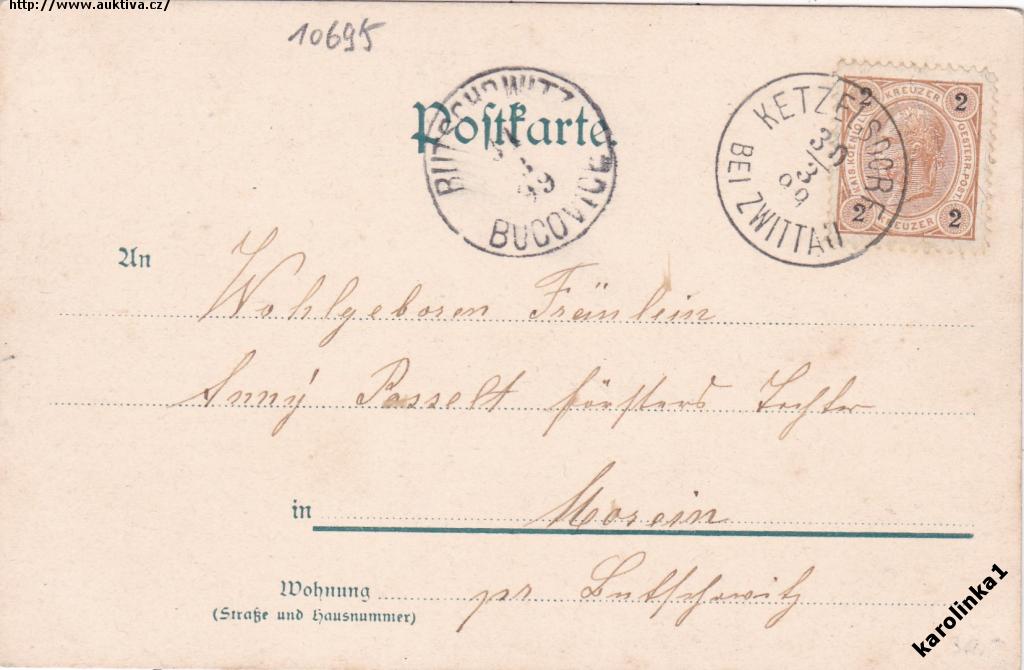 http://www.auktiva.cz/
10695
Postkarte.
BUTSCHOWITZ
99
BUCOVICE
KETZELSDORF
30/3
99
BEI ZWITTAU
2 KREUZER 2
KAIS. KOENIGL. OESTERR. POST.
2 KREUZER 2
An Wohlgeboren Fräulein
Anny Posselt Försters Tochter
in
pr Butschowitz
Wohnung
(Straße und Hausnummer)
karolinka1